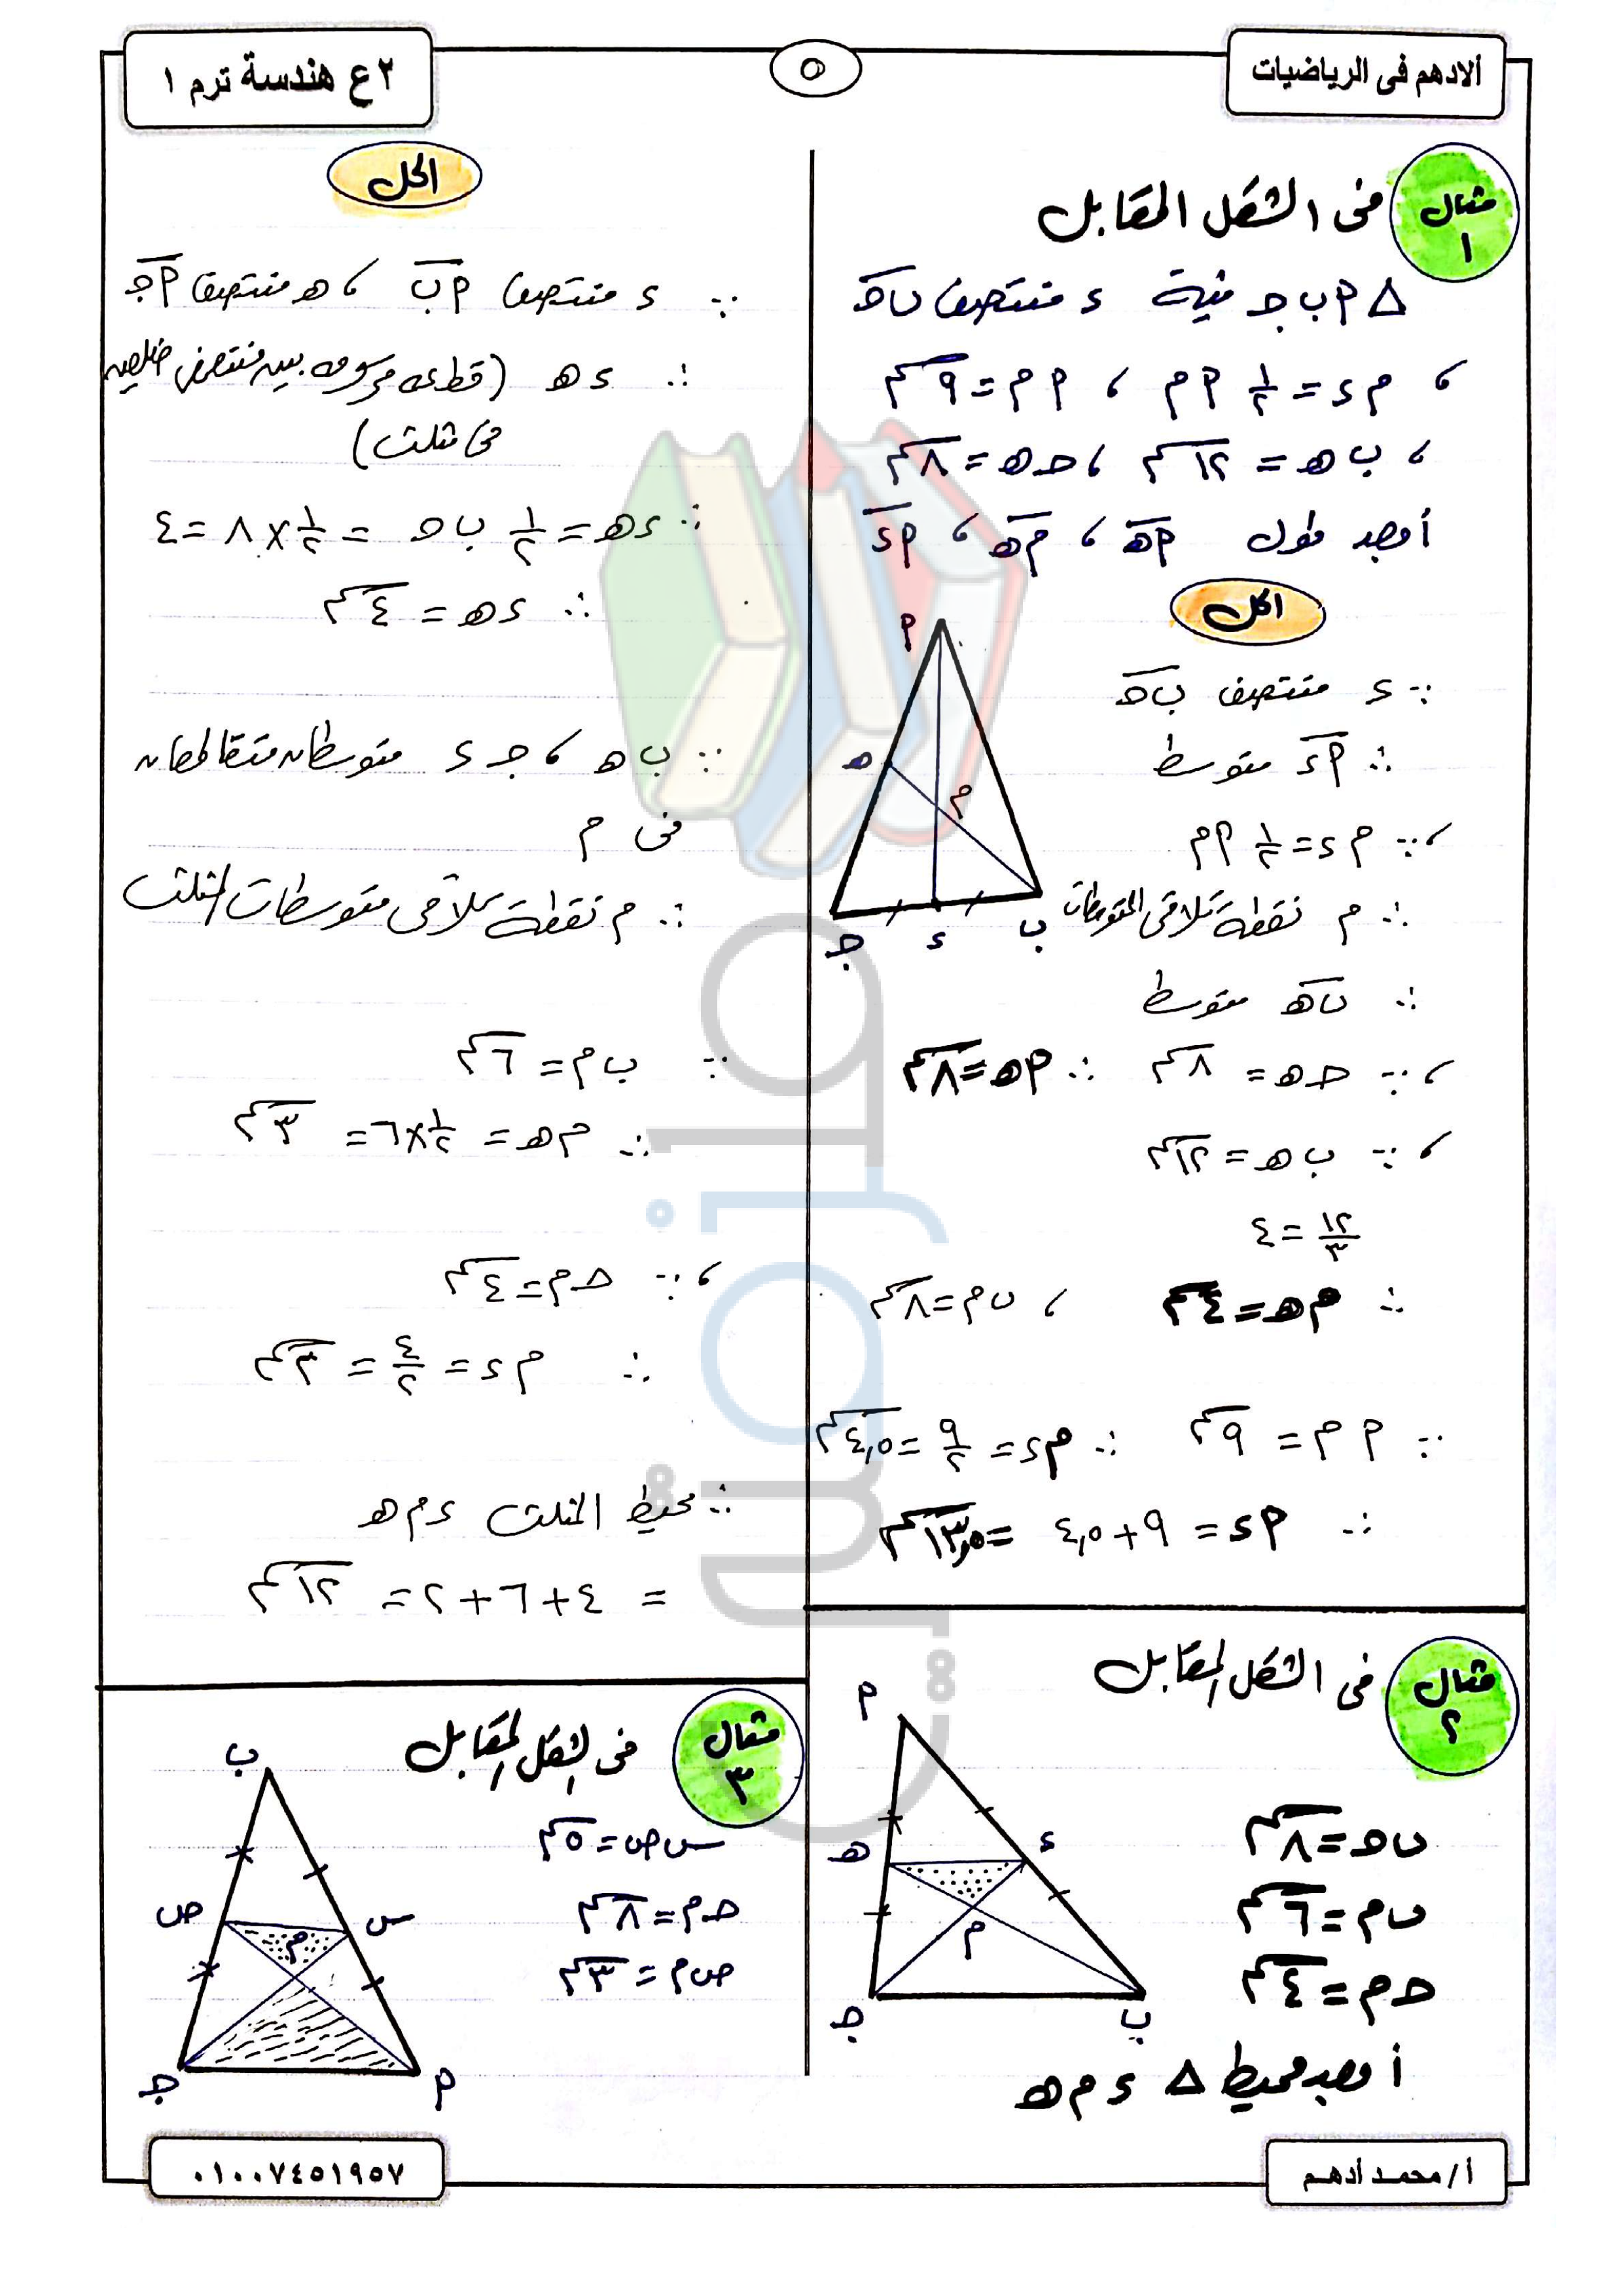 ألادهم فى الرياضيات
٥
٢ ع هندسة ترم ١
مثال ١
فى الشكل المقابل
△ ٩ ب جـ فيه ء منتصف ب جـ
، م ء = ١/٢ ٩ م ، ٩ م = ٩ سم
، ب هـ = ١٢ سم ، جـ هـ = ٨ سم
أوجد طول ٩ هـ ، م هـ ، ٩ ء
الحل
∵ ء منتصف ب جـ
∴ ٩ ء متوسط
، ∵ م ء = ١/٢ ٩ م
∴ م نقطة تلاقى المتوسطات
∴ ب هـ متوسط
، ∵ جـ هـ = ٨ سم ∴ ٩ هـ = ٨ سم
، ∵ ب هـ = ١٢ سم
١٢/٣ = ٤
∴ م هـ = ٤ سم ، ب م = ٨ سم
∵ ٩ م = ٩ سم ∴ م ء = ٩/٢ = ٤,٥ سم
∴ ٩ ء = ٩ + ٤,٥ = ١٣,٥ سم
٩
هـ
م
جـ ء ب
مثال ٢
فى الشكل المقابل
ب جـ = ٨ سم
ب م = ٦ سم
جـ م = ٤ سم
أوجد محيط △ ء م هـ
٩
هـ ء
م
جـ ب
الحل
∵ ء منتصف ٩ ب ، هـ منتصف ٩ جـ
∴ ء هـ (قطعة مرسومة بين منتصفى ضلعين
فى مثلث)
∴ ء هـ = ١/٢ ب جـ = ١/٢ × ٨ = ٤
∴ ء هـ = ٤ سم
∵ ب هـ ، جـ ء متوسطان متقاطعان
فى م
∴ م نقطة تلاقى متوسطات المثلث
∵ ب م = ٦ سم
∴ م هـ = ١/٢ × ٦ = ٣ سم
، ∵ جـ م = ٤ سم
∴ م ء = ٤/٢ = ٢ سم
∴ محيط المثلث ء م هـ
= ٤ + ٦ + ٢ = ١٢ سم
مثال ٣
فى الشكل المقابل
س ص = ٥ سم
جـ م = ٨ سم
ص م = ٣ سم
ب
ص س
م
جـ ٩
أ / محمد أدهم
٠١٠٠٧٤٥١٩٥٧